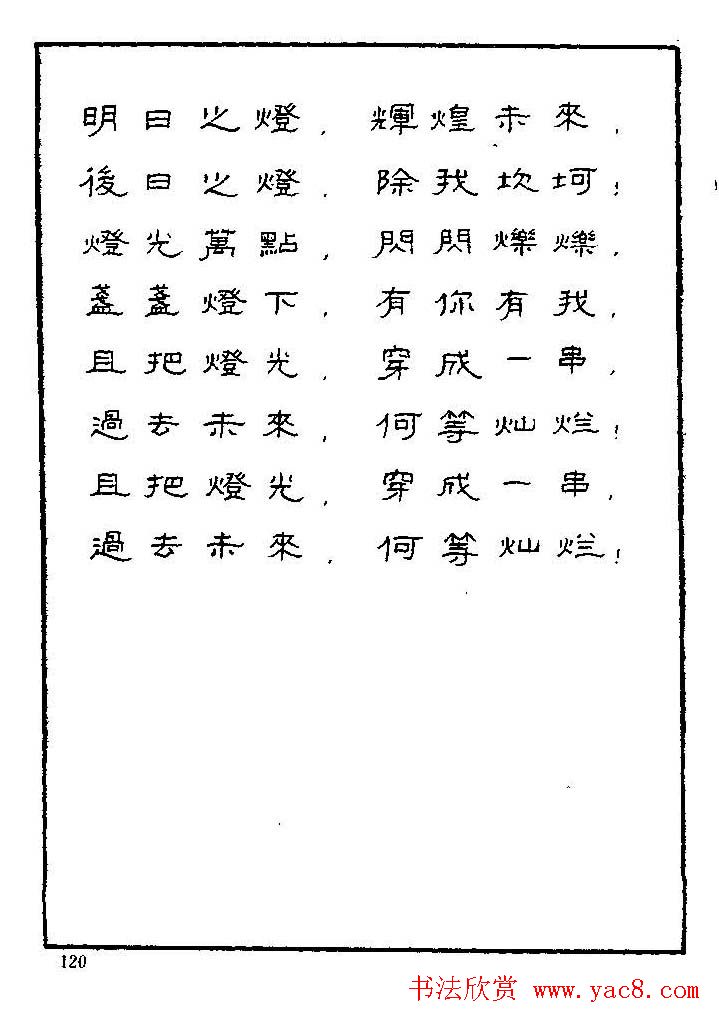 明日之燈，輝煌未來，
後日之燈，除我坎坷！
燈光萬點，閃閃爍爍，
盞盞燈下，有你有我，
且把燈光，穿成一串，
過去未來，何等灿烂！
且把燈光，穿成一串，
過去未來，何等灿烂！
120
书法欣赏 www.yac8.com